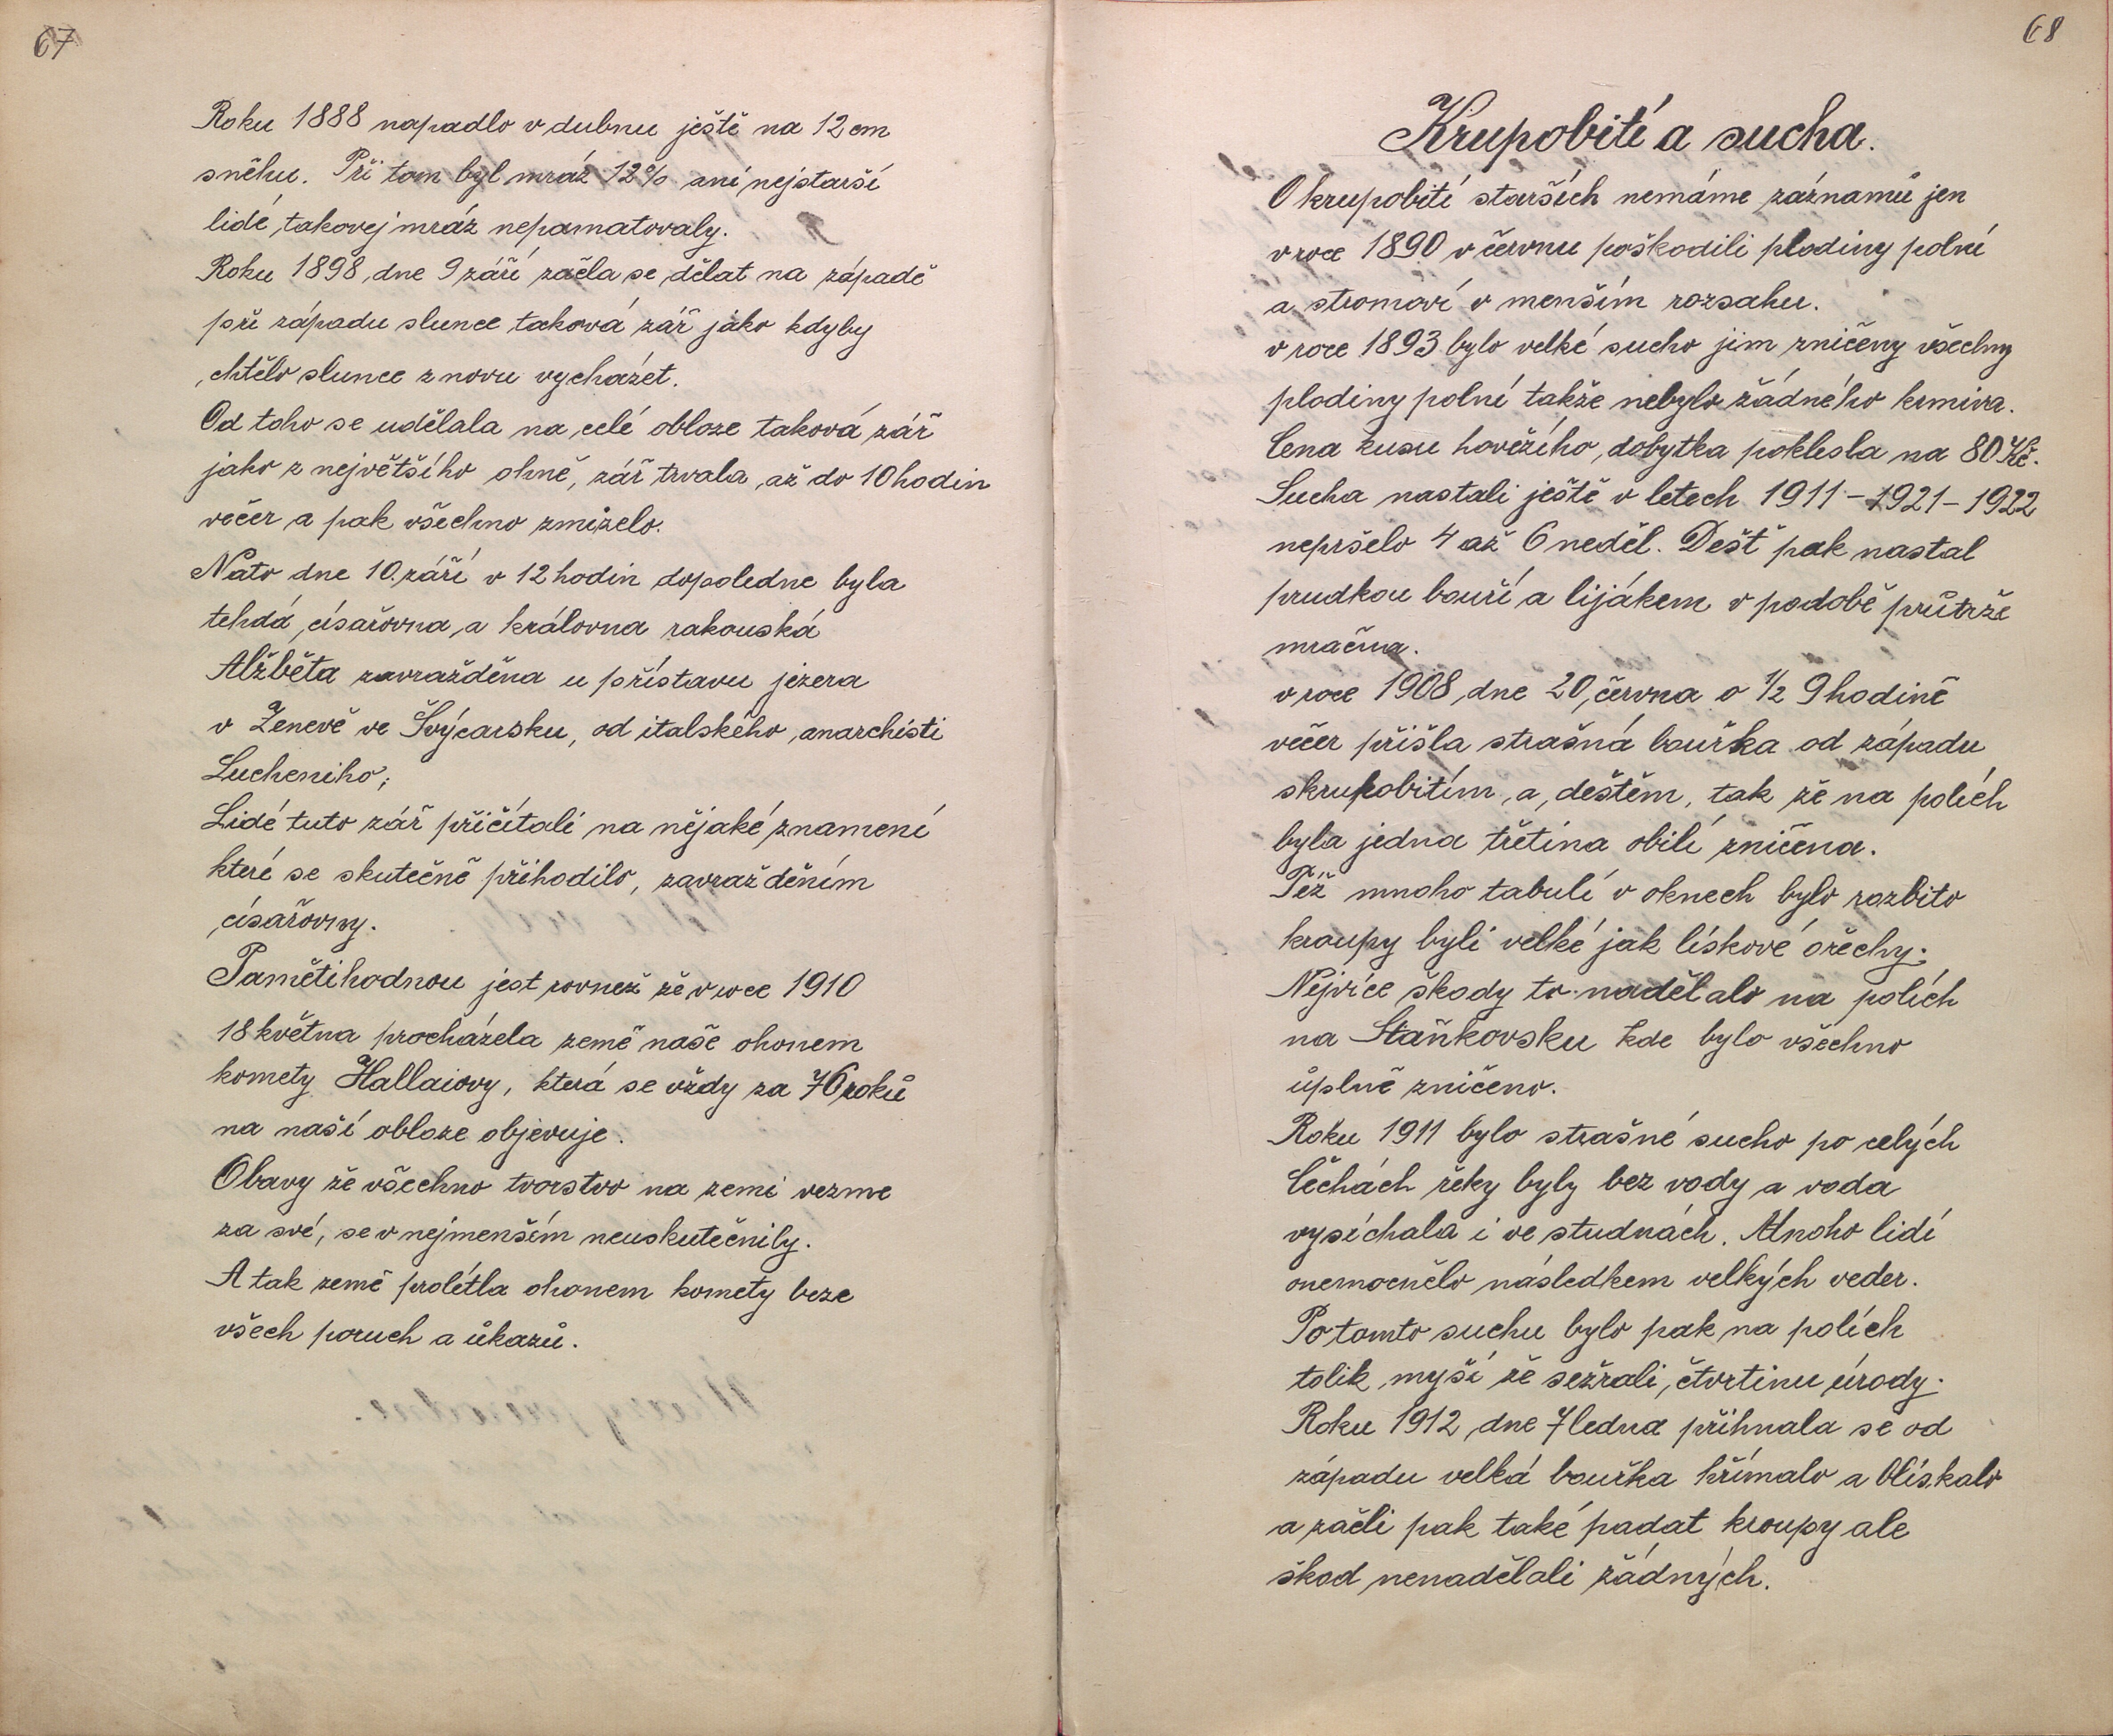 67
Roku 1888 napadlo v dubnu ještě na 12 cm
sněhu. Při tom byl mráz 12% ani nejstarší
lidé, takovej mráz nepamatovaly.
Roku 1898 dne 9 září začla se dělat na západě
při západu slunce taková zář jako kdyby
chtělo slunce znovu vycházet.
Od toho se udělala na celé obloze taková zář
jako z největšího ohně, zář trvala až do 10 hodin
večer a pak všechno zmizelo.
Nato dne 10. září v 12 hodin dopoledne byla
tehdá císařovna a královna rakouská
Alžběta zavražděna u přístavu jezera
v Ženevě ve Švýcarsku, od italského anarchisti
Lucheniho;
Lidé tuto zář přičítali na nějaké znamení
které se skutečně přihodilo, zavražděním
císařovny.
Pamětihodnou jest rovnež že v roce 1910
18 května procházela země naše ohonem
komety Hallaiovy, která se vždy za 76 roků
na naší obloze objevuje.
Obavy že všechno tvorstvo na zemi vezme
za své, se v nejmenším neuskutečnily.
A tak země prolétla ohonem komety beze
všech poruch a úkazů.
68
Krupobití a sucha.
O krupobití starších nemáme záznamů jen
v roce 1890 v červnu poškodili plodiny polní
a stromoví v menším rozsahu.
v roce 1893 bylo velké sucho jim zničeny všechny
plodiny polní takže nebylo žádného krmiva.
Cena kusu hovězího, dobytka poklesla na 80 Kč.
Sucha nastali ještě v letech 1911 – 1921 – 1922
nepršelo 4 až 6 neděl. Dešt pak nastal
prudkou bouří a lijákem v podobě průtrže
mračna.
v roce 1908 dne 20, června o 1/2 9 hodině
večer přišla strašná bouřka od západu
skrupobitím, a, deštěm, tak že na polích
byla jedna třetina obilí zničena.
Též mnoho tabulí v oknech bylo rozbito
kroupy byli velké jak lískové ořechy.
Nejvíce škody to nadělalo na polích
na Staňkovsku kde bylo všechno
úplně zničeno.
Roku 1911 bylo strašné sucho po celých
Čechách řeky byly bez vody a voda
vysíchala i ve studnách. Mnoho lidí
onemocnělo následkem velkých veder.
Po tomto suchu bylo pak na polích
tolik myší že sežrali, čtvrtinu úrody.
Roku 1912 dne 7 ledna přihnala se od
západu velká bouřka hřímalo a blískalo
a začli pak také padat kroupy ale
škod nenadělali žádných.